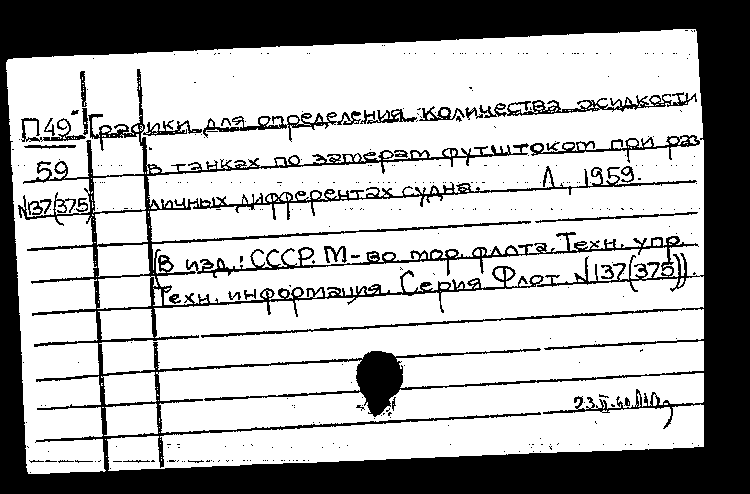 П49 Графики для определения количества жидкости
59 в танках по замерам футштоком при раз-
N137(375) личных дифферентах судна. Л., 1959.
(В изд.: СССР. М-во мор. флота. Техн. упр.
Техн. информация. Серия Флот. N137(375)).
23.II.60.